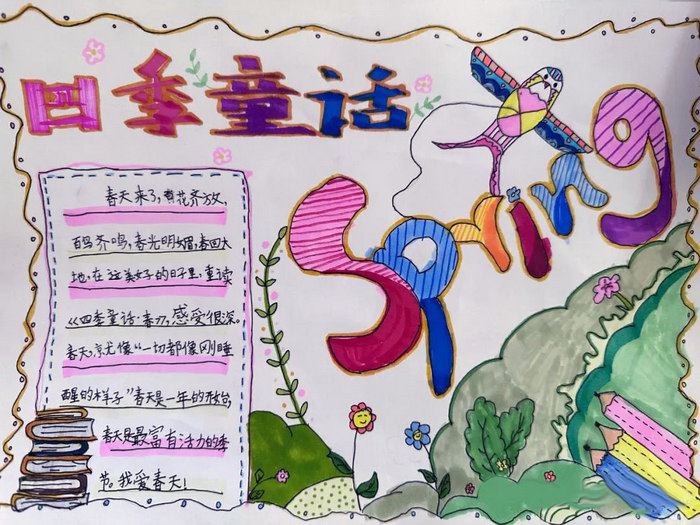 四季童话
Spring
春天来了,百花齐放,
百鸟齐鸣,春光明媚,春回大
地,在这美好的日子里,重读
《四季童话·春》,感受很深。
春天,就像“一切都像刚睡
醒的样子”春天是一年的开始,
春天是最富有活力的季
节。我爱春天!